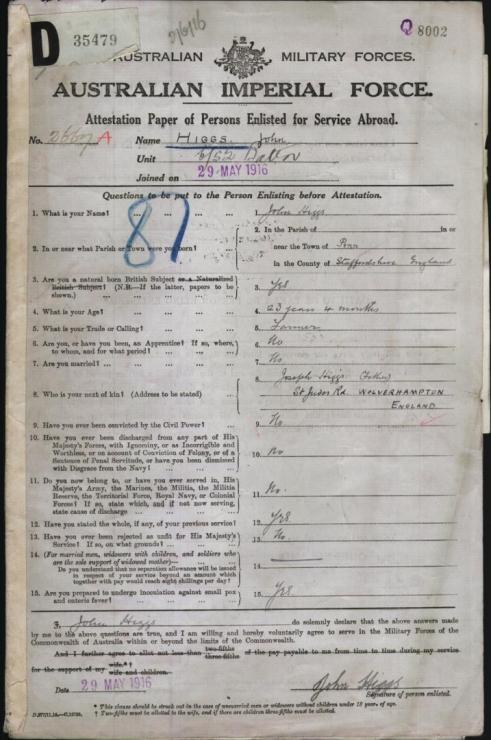 D 35479
2/6/16
Q 8002
AUSTRALIAN MILITARY FORCES.
AUSTRALIAN IMPERIAL FORCE.
Attestation Paper of Persons Enlisted for Service Abroad.
No. 2667 A Name HIGGS John
Unit 6/52 Battn
Joined on 29 MAY 1916
Questions to be put to the Person Enlisting before Attestation.
87
1. What is your Name? ... 1. John Higgs
2. In or near what Parish or Town were you born? ... 2. In the Parish of in or
near the Town of Penn
in the County of Staffordshire England
3. Are you a natural born British Subject or a Naturalized
British Subject? (N.B.—If the latter, papers to be
shown.) ... 3. Yes
4. What is your Age? ... 4. 23 years 4 months
5. What is your Trade or Calling? ... 5. Farmer
6. Are you, or have you been, an Apprentice? If so, where,
to whom, and for what period? ... 6. No
7. Are you married? ... 7. No
8. Who is your next of kin? (Address to be stated) ... 8. Joseph Higgs (Father)
St Judes Rd. WOLVERHAMPTON
ENGLAND
9. Have you ever been convicted by the Civil Power? ... 9. No
10. Have you ever been discharged from any part of His
Majesty's Forces, with Ignominy, or as Incorrigible and
Worthless, or on account of Conviction of Felony, or of a
Sentence of Penal Servitude, or have you been dismissed
with Disgrace from the Navy? ... 10. No
11. Do you now belong to, or have you ever served in, His
Majesty's Army, the Marines, the Militia, the Militia
Reserve, the Territorial Force, Royal Navy, or Colonial
Forces? If so, state which, and if not now serving,
state cause of discharge ... 11. No.
12. Have you stated the whole, if any, of your previous service? 12. Yes
13. Have you ever been rejected as unfit for His Majesty's
Service? If so, on what grounds? ... 13. No
14. (For married men, widowers with children, and soldiers who
are the sole support of widowed mother)—
Do you understand that no separation allowance will be issued
in respect of your service beyond an amount which
together with pay would reach eight shillings per day? 14.
15. Are you prepared to undergo inoculation against small pox
and enteric fever? ... 15. Yes
I, John Higgs do solemnly declare that the above answers made
by me to the above questions are true, and I am willing and hereby voluntarily agree to serve in the Military Forces of the
Commonwealth of Australia within or beyond the limits of the Commonwealth.
And I further agree to allot not less than two-fifths three-fifths of the pay payable to me from time to time during my service
for the support of my wife.* wife and children.†
Date 29 MAY 1916 John Higgs
Signature of person enlisted.
* This clause should be struck out in the case of unmarried men or widowers without children under 18 years of age.
† Two-fifths must be allotted to the wife, and if there are children three-fifths must be allotted.